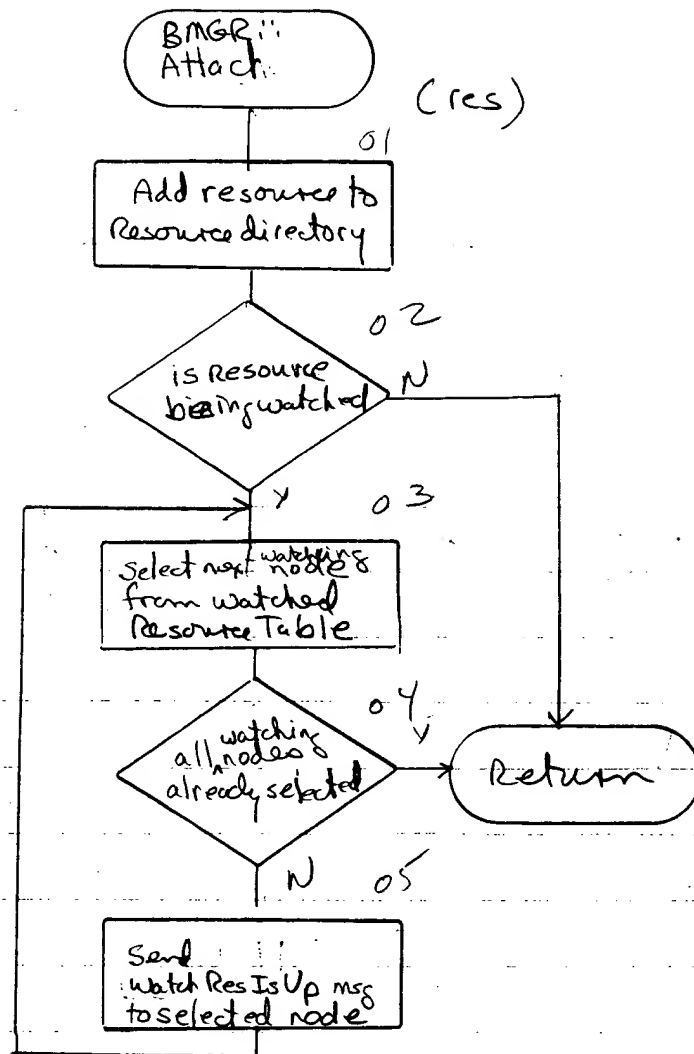 BMGR::
Attach
(res)
01
Add resource to
Resource directory
02
is Resource
being watched
N
Y
03
select next watching node
from watched
Resource Table
04
all watching nodes
already selected
Y
Return
N
05
Send
watchResIsUp msg
to selected node